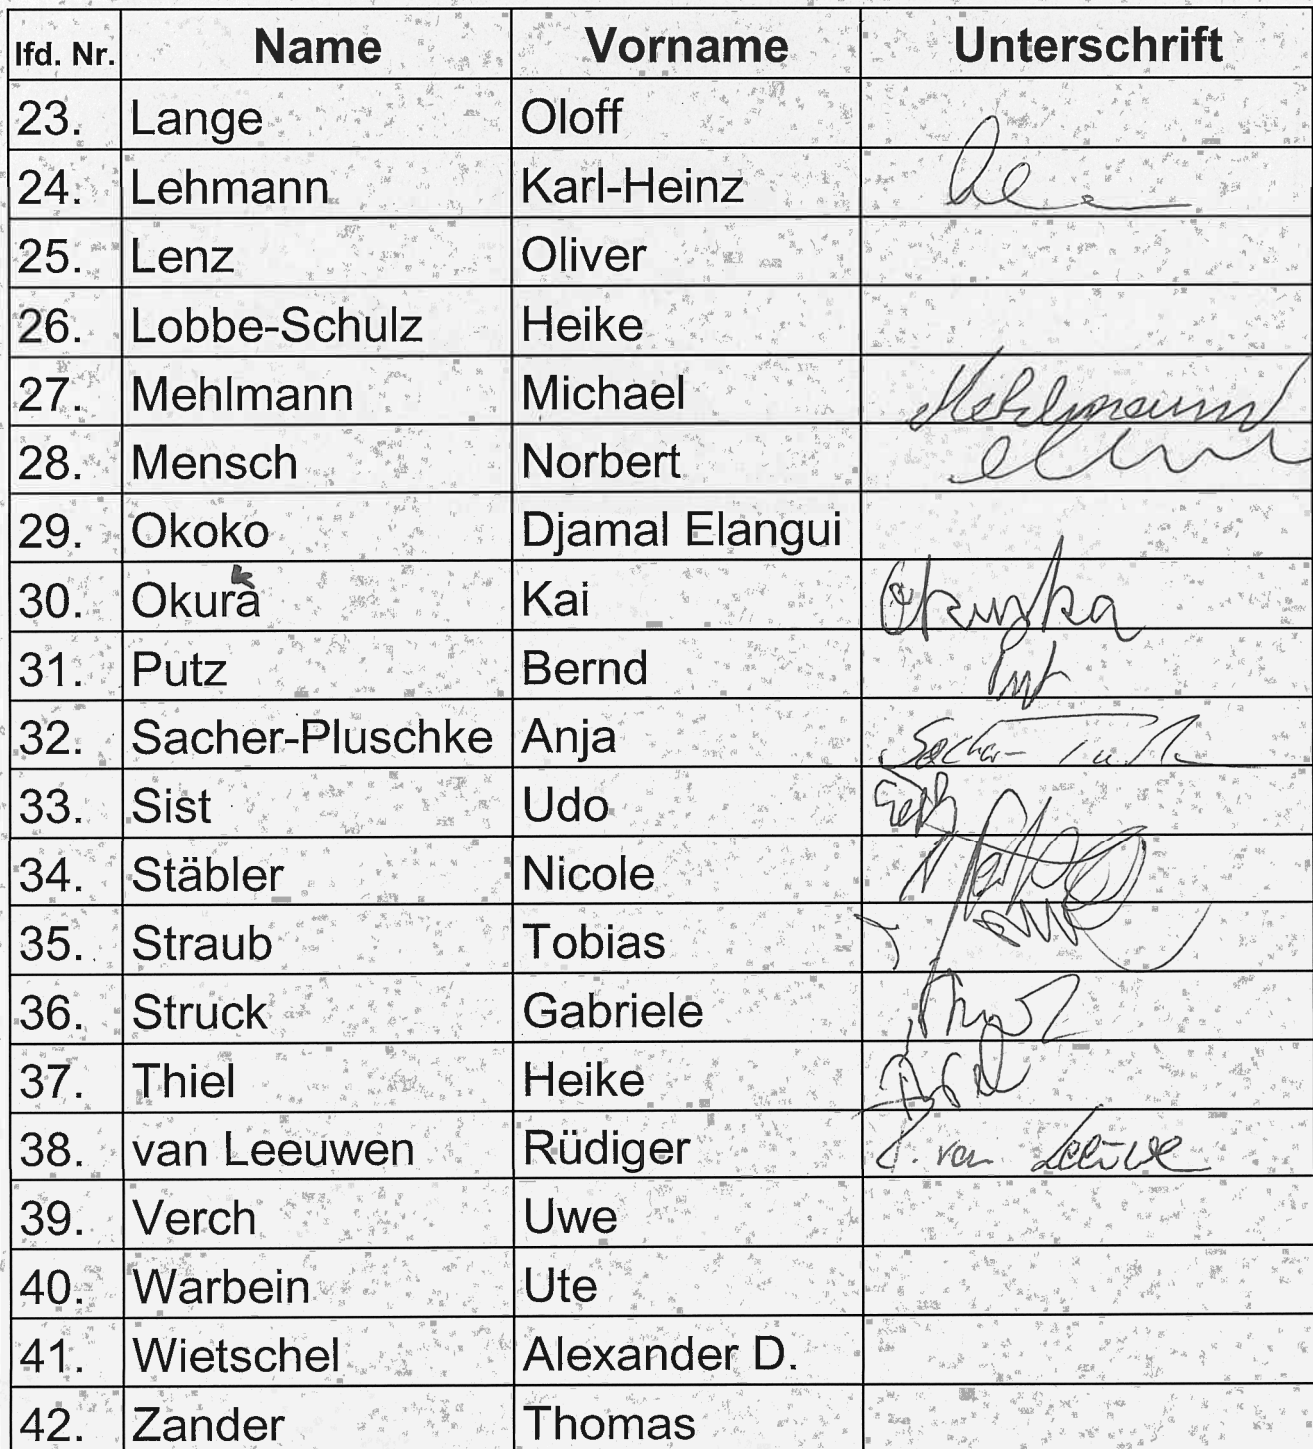 lfd. Nr. Name Vorname Unterschrift
23. Lange Oloff
24. Lehmann Karl-Heinz
25. Lenz Oliver
26. Lobbe-Schulz Heike
27. Mehlmann Michael Mehlmann
28. Mensch Norbert
29. Okoko Djamal Elangui
k
30. Okura Kai Okurka
31. Putz Bernd
32. Sacher-Pluschke Anja Sacher-
33. Sist Udo
34. Stäbler Nicole
35. Straub Tobias
36. Struck Gabriele
37. Thiel Heike
38. van Leeuwen Rüdiger R. van Leeuwe
39. Verch Uwe
40. Warbein Ute
41. Wietschel Alexander D.
42. Zander Thomas